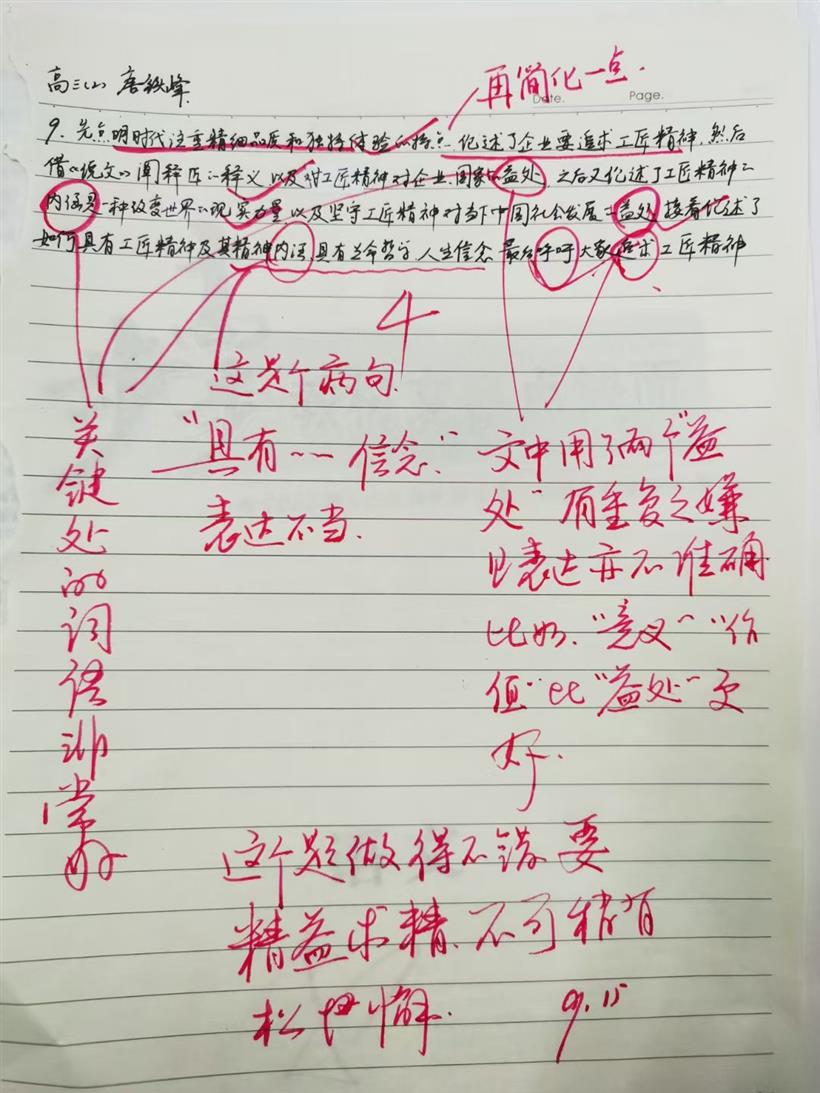 再简化一点.
高三(1) 唐
Date. Page.
9. 先点明时代注重精细品质和独特体验的特点 论述了企业要追求工匠精神,然后
借《说文》阐释匠的释义 以及对工匠精神对企业、国家的益处,之后又论述了工匠精神的
内涵是一种改变世界的现实力量 以及坚守工匠精神对当下中国社会发展的益处 接着论述了
如何具有工匠精神及其精神内涵,具有生命哲学、人生信念 最后呼吁大家追求工匠精神
4
这是个病句.
“具有——信念.”
表达不当.
关键处的词语非常好
文中用了两个“益
处”有重复之嫌
且表达亦不准确
比如.“意义”“价
值”比“益处”更
好.
这个题做得不错 要
精益求精、不可稍有
松懈.
9.15